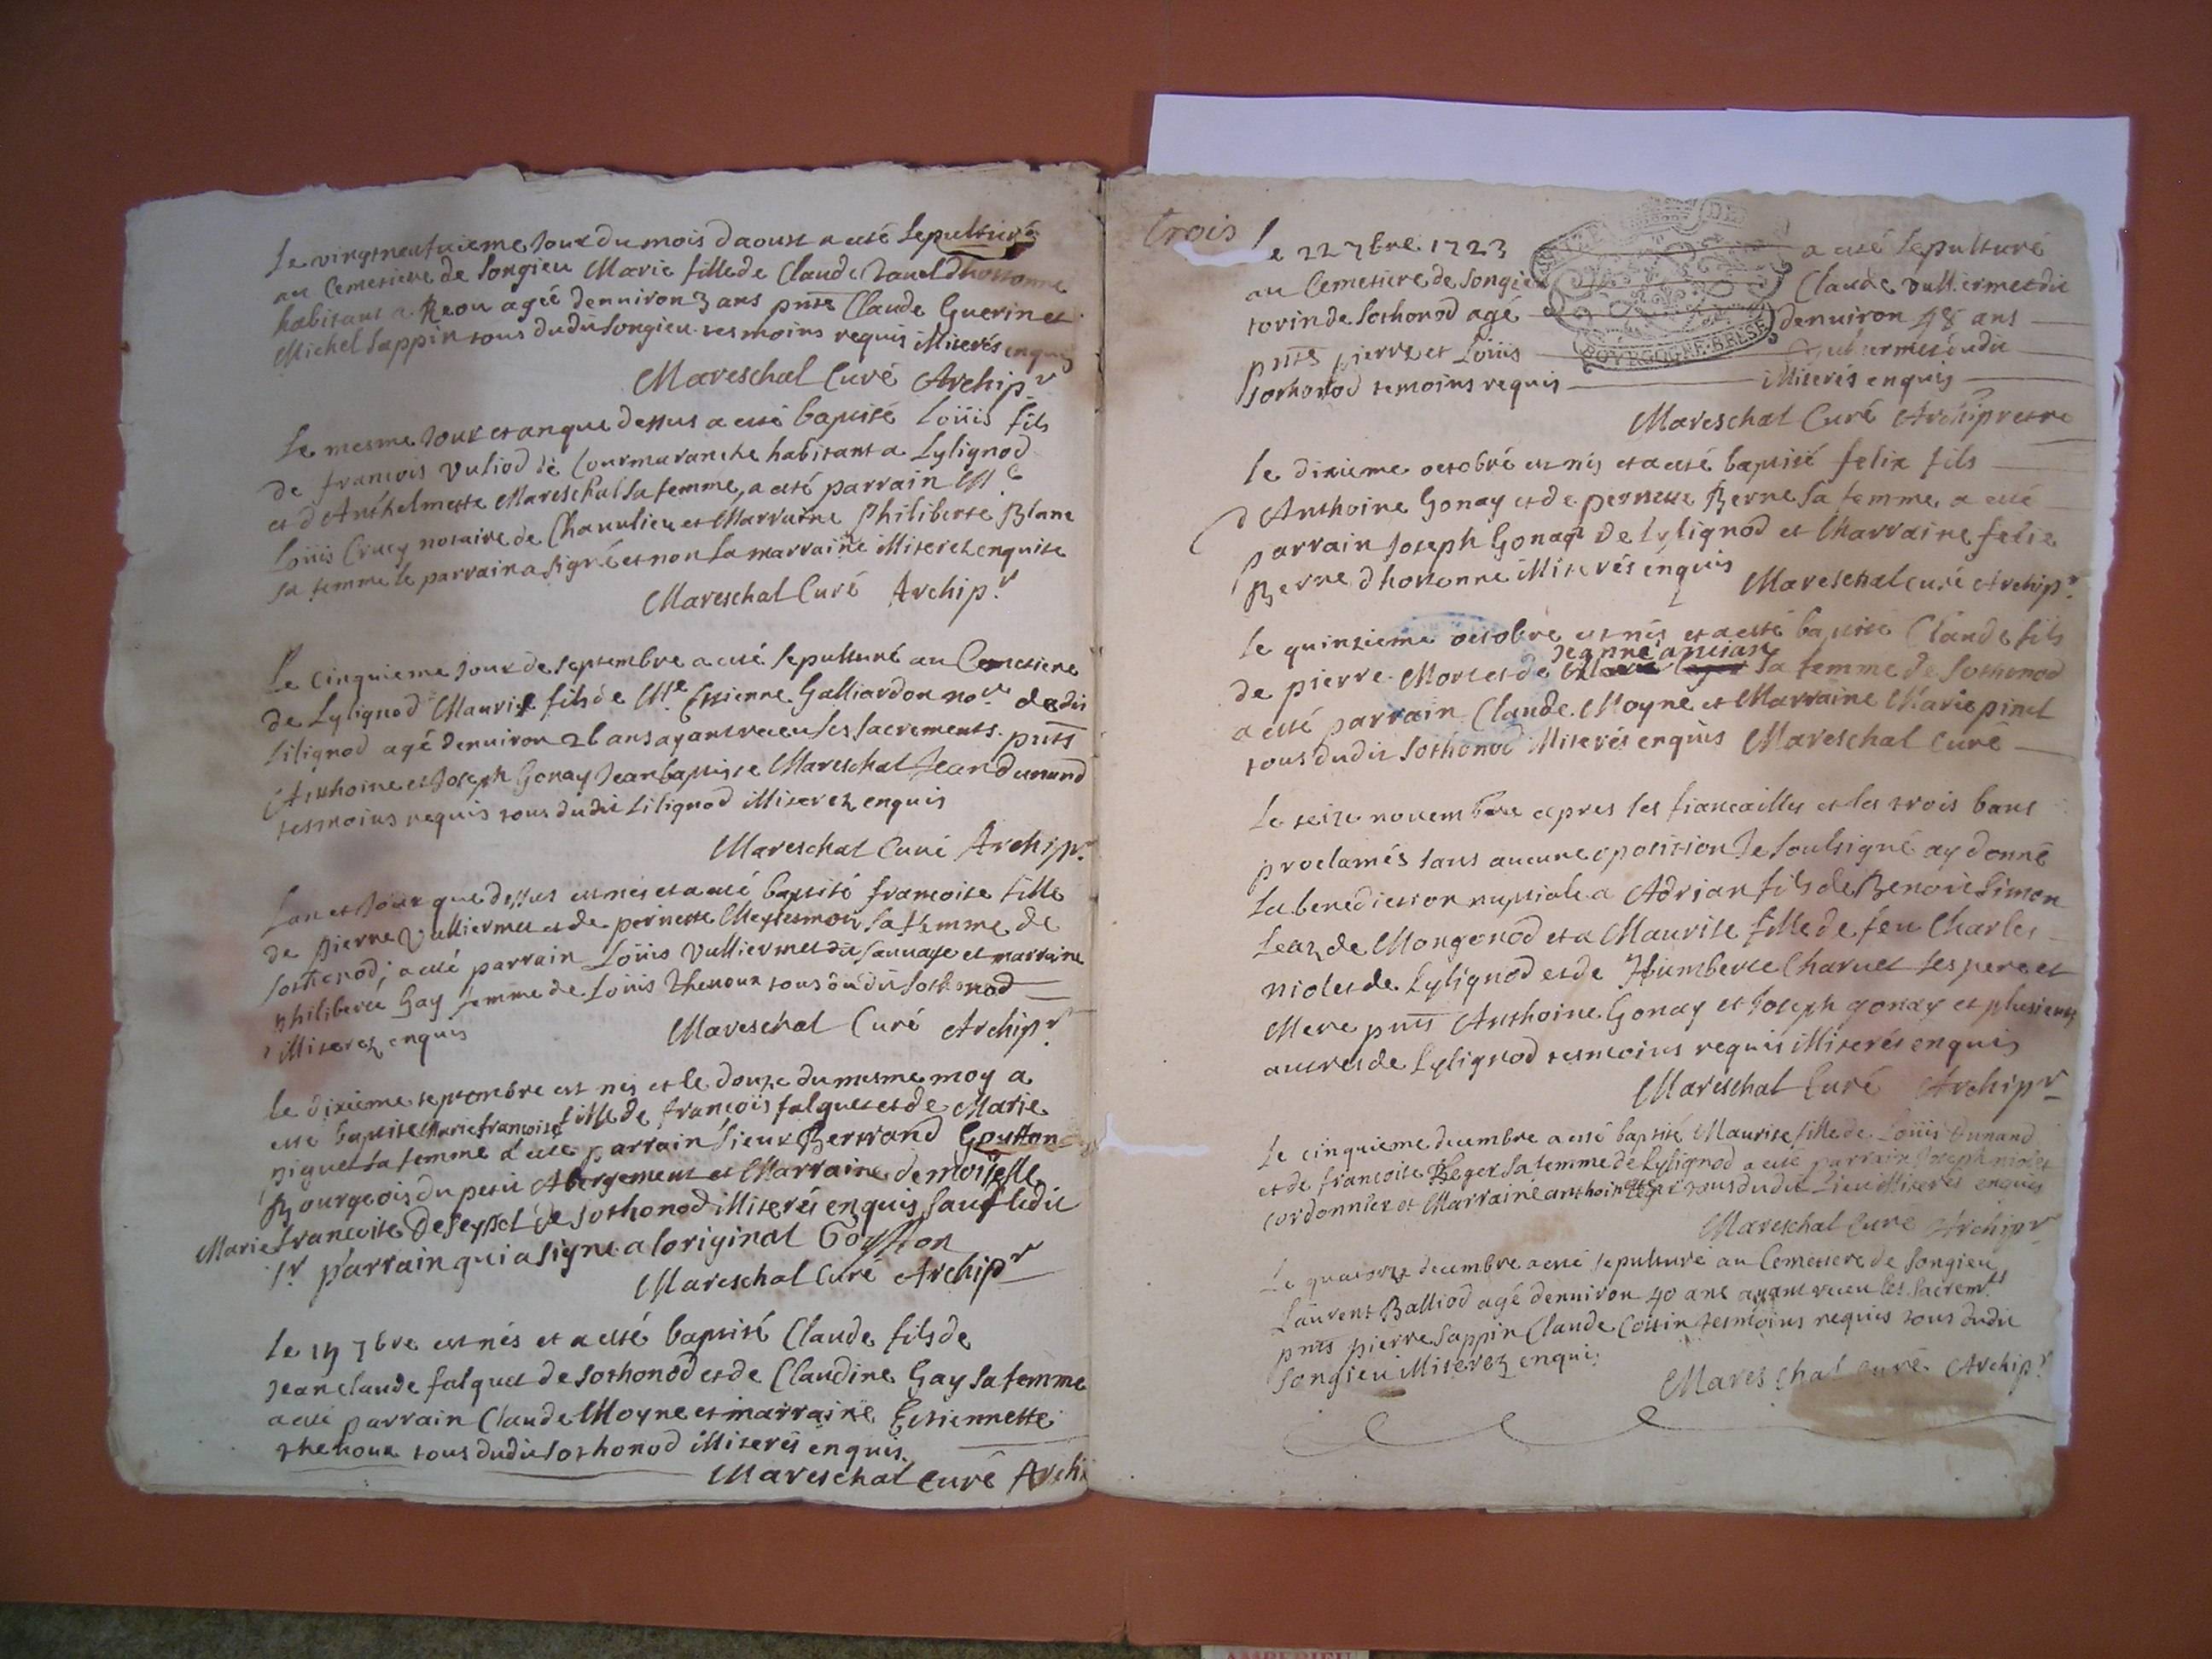 Le vingtneufvieme Jour du mois daoust a esté Sepulturé
au Cemetiere de Songieu Marie fille de Claude
habitant a Reou agée denuiron 3 ans pnts Claude Guerin et
Michel Sappin tous dudit Songieu tesmoins requis illiterés enquis
Mareschal Curé Archipr
Le mesme Jour et an que dessus a esté baptisé Loüis fils
de francois Vuliod de Courmaranche habitant a Lylignod
et d'Anthelmette Mareschal sa femme, a esté parrain Me
Loüis Crucy notaire de Chanulieu et Marraine Philiberte Blanc
sa femme le parrain a signé et non la marraine illiterez enquise
Mareschal Curé Archipr
Le cinquieme Jour de Septembre a esté Sepulturé au Cemetiere
de Lylignod Maurice fils de Me Estienne Galliardon nore dudit
Lilignod agé denuiron 26 ans ayant receu les sacrements pnts
Anthoine et Joseph Gonay Jean baptiste Mareschal Jean dunand
tesmoins requis tous dudit Lilignod illiterez enquis
Mareschal Curé Archipr
Lan et Jour que dessus est nés et a esté baptisé francoise fille
de pierre Vulliermet et de pernette sa femme de
sothonod; a esté parrain Loüis Vulliermet dit sauuage et marraine
philiberte Gay femme de Loüis Thenoux tous dudit Sothonod
illiterez enquis
Mareschal Curé Archipr
le dixieme septembre est nés et le douze du mesme moy a
esté baptisé Marie francoise fille de françois falquet et de Marie
piguet sa femme a esté parrain Sieur Bertrand Goyffon
Bourgeois du petit Abergement et Marraine demoiselle
Marie francoise De Seyssel de Sothonod illiterés enquis sauf ledit
Sr parrain qui a signé a loriginal Goyffon
Mareschal Curé Archipr
Le 19 7bre est nés et a esté baptisé Claude fils de
Jean claude falquet de Sothonod et de Claudine Gay sa femme
a esté parrain Claude Moyne et marraine Estiennette
thenoux tous dudit Sothonod illiterés enquis.
Mareschal Curé Archi
trois
Le 22 7bre 1723 a esté Sepulturé
au Cemetiere de Songieu Claude vulliermet dit
torin de Sothonod agé denuiron 48 ans
pnts pierre et Loüis vulliermet dudit
sothonod temoins requis illiterés enquis
Mareschal Curé Archipretre
Le dixieme octobre est nés et a esté baptisé felix fils
d'Anthoine Gonay et de pernette Berne sa femme a esté
parrain Joseph Gonay de Lylignod et Marraine felix
Berne d'hotonne illiterés enquis Mareschal curé Archipr
Le quinzieme octobre est nés et a esté baptisé Claude fils
Jeanne ancian
de pierre Moret de sa femme de Sothonod
a esté parrain Claude Moyne et Marraine Marie pinel
tous dudit Sothonod illiterés enquis Mareschal Curé
Le seize nouembre apres les fiancailles et les trois bans
proclamés sans aucune oposition Je soubsigné ay donné
la benediction nuptiale a Adrian fils de Benoit Simon
Jeaz de Mongonod et a Maurise fille de feu Charles
niolet de Lylignod et de Humberte Charuet ses pere et
Mere pnts Anthoine Gonay et Joseph gonay et plusieurs
autres de Lylignod tesmoins requis illiterés enquis
Mareschal Curé Archipr
Le cinquieme decembre a esté baptisé Maurise fille de Loüis Dunand
et de francoise Reger sa femme de Lylignod a esté parrain Joseph niolet
cordonnier et Marraine tous dudit lieu illiterés enquis
Mareschal Curé Archipr
Le quatorze decembre a esté Sepulturé au Cemetiere de Songieu
Laurent Balliod agé denuiron 40 ans ayant receu les Sacremts
pnts pierre Sappin Claude Cottin tesmoins requis tous dudit
Songieu illiterez enquis
Mareschal curé Archipr